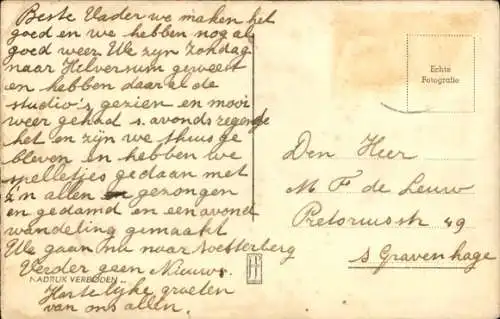 Beste Vader we maken het
goed en we hebben nog al
goed weer. We zijn Zondag
naar Hilversum geweest
en hebben daar al de
studio's gezien en mooi
weer gehad s.avonds regende
het en zijn we thuis ge
bleven en hebben we
spelletjes gedaan met
z'n allen gezongen
en gedamd en een avond
wandeling gemaakt
We gaan nu naar Soesterberg
Verder geen Nieuws.
NADRUK VERBODEN
Hartelijke groeten
van ons allen.
Echte
Fotografie
Den Heer
M F de Leuw
Pretoriusstr 49
s Gravenhage